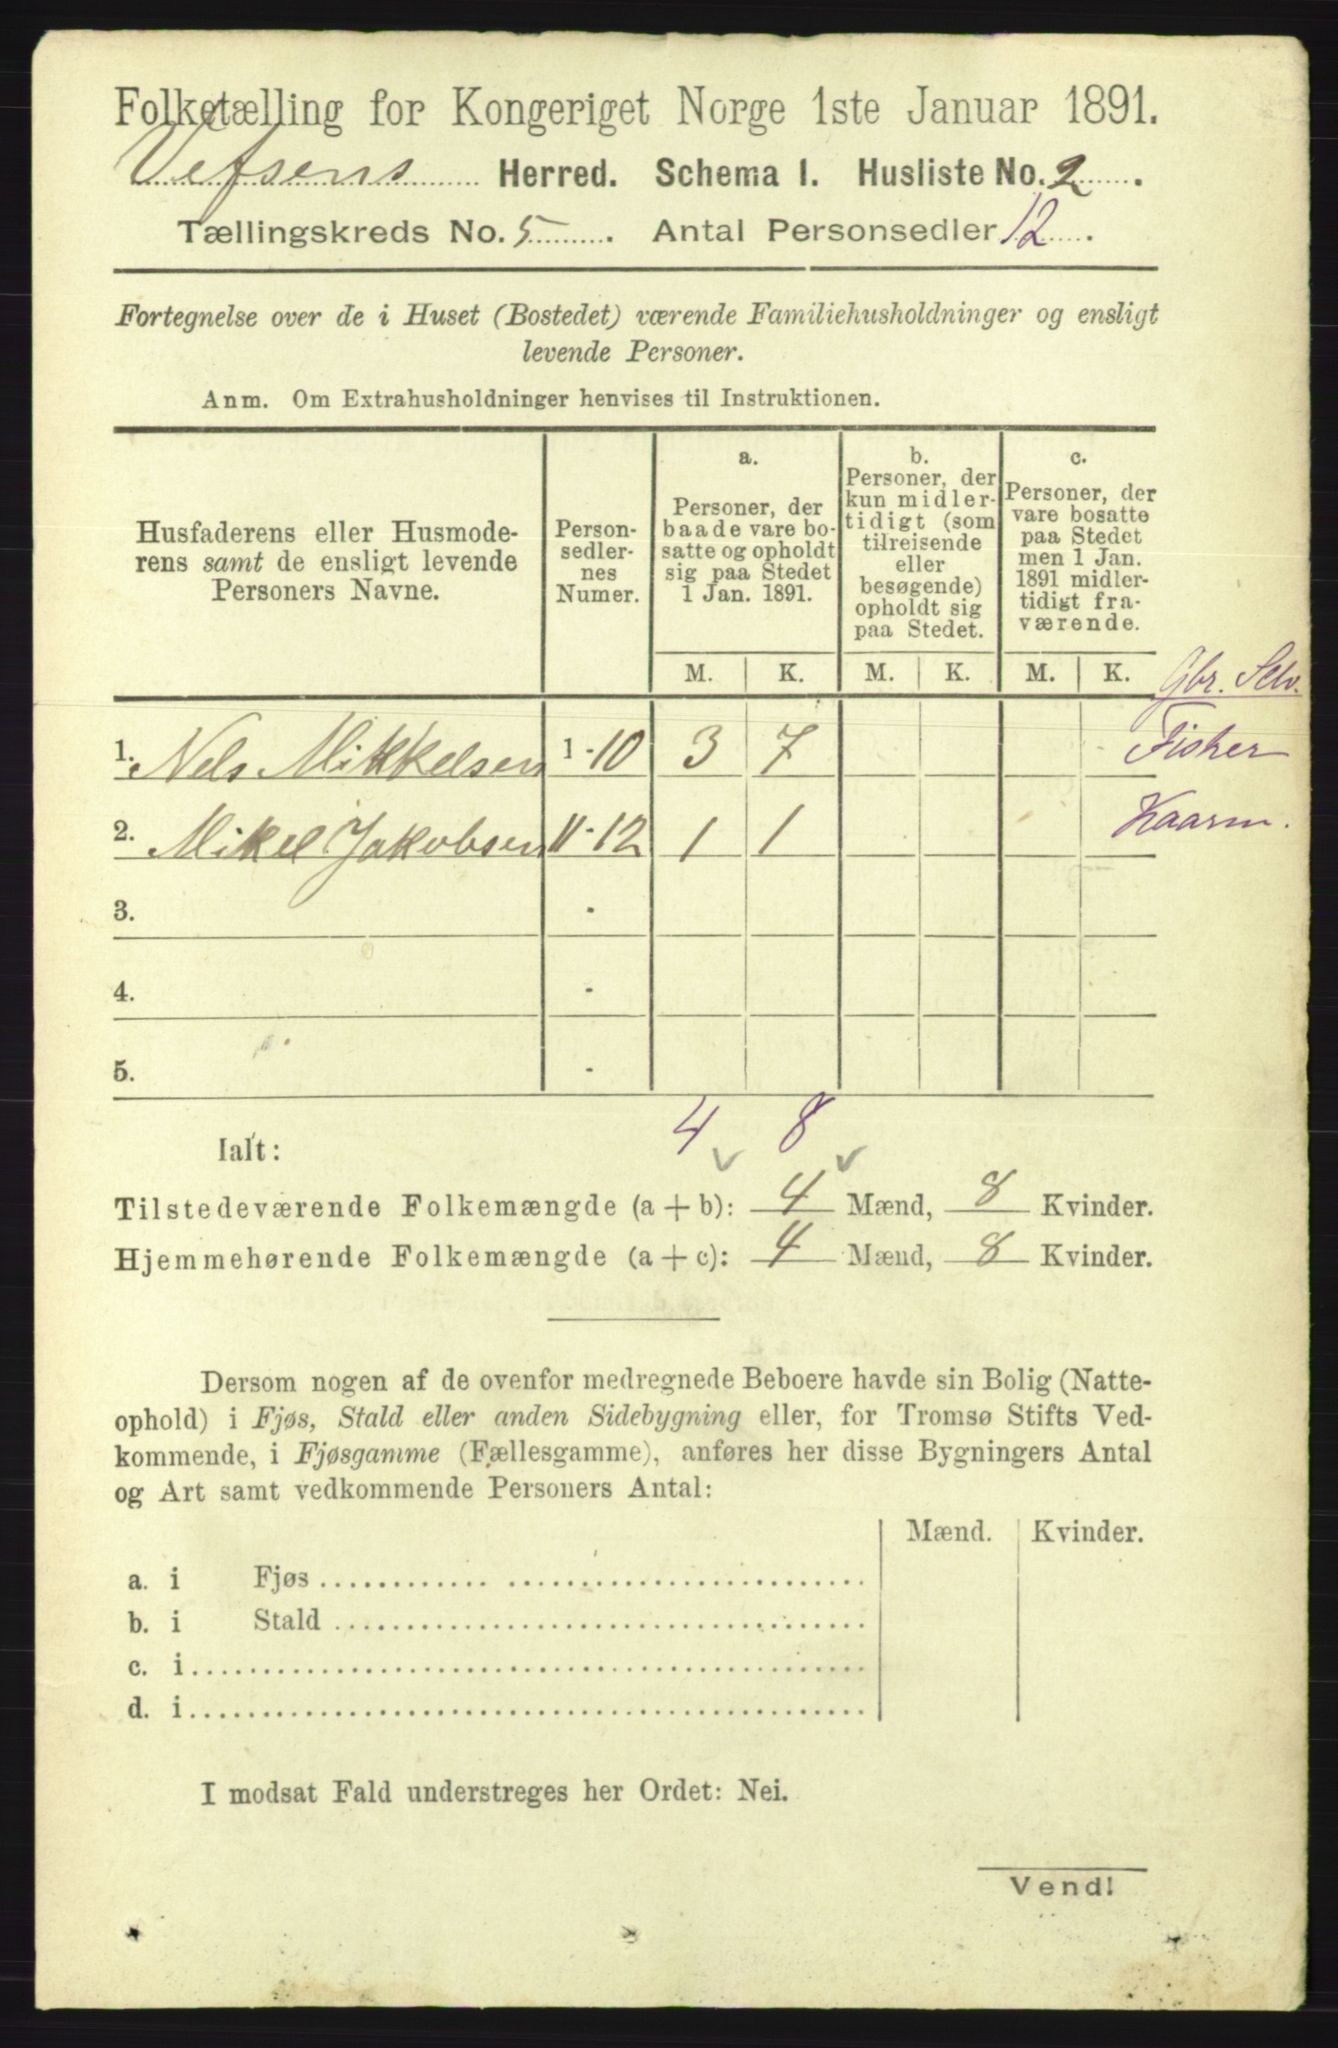 Folketælling for Kongeriget Norge 1ste Januar 1891.
Vefsens Herred. Schema I. Husliste No. 2.
Tællingskreds No. 5. Antal Personsedler 12.
Fortegnelse over de i Huset (Bostedet) værende Familiehusholdninger og ensligt
levende Personer.
Anm. Om Extrahusholdninger henvises til Instruktionen.
Husfaderens eller Husmode-
rens samt de ensligt levende
Personers Navne.
Person-
sedler-
nes
Numer.
a.
Personer, der
baade vare bo-
satte og opholdt
sig paa Stedet
1 Jan. 1891.
b.
Personer, der
kun midler-
tidigt (som
tilreisende
eller
besøgende)
opholdt sig
paa Stedet.
c.
Personer, der
vare bosatte
paa Stedet
men 1 Jan.
1891 midler-
tidigt fra-
værende.
M. K. M. K. M. K.
Gbr. Selv.
1. Nels Mikkelsen 1-10 3 7 Fisker
2. Mikel Jakobsen 11-12 1 1 Kaarm.
3. -
4. -
5. -
4 8
Ialt:
Tilstedeværende Folkemængde (a + b): 4 Mænd, 8 Kvinder.
Hjemmehørende Folkemængde (a + c): 4 Mænd, 8 Kvinder.
Dersom nogen af de ovenfor medregnede Beboere havde sin Bolig (Natte-
ophold) i Fjøs, Stald eller anden Sidebygning eller, for Tromsø Stifts Ved-
kommende, i Fjøsgamme (Fællesgamme), anføres her disse Bygningers Antal
og Art samt vedkommende Personers Antal:
Mænd. Kvinder.
a. i Fjøs
b. i Stald
c. i
d. i
I modsat Fald understreges her Ordet: Nei.
Vend!